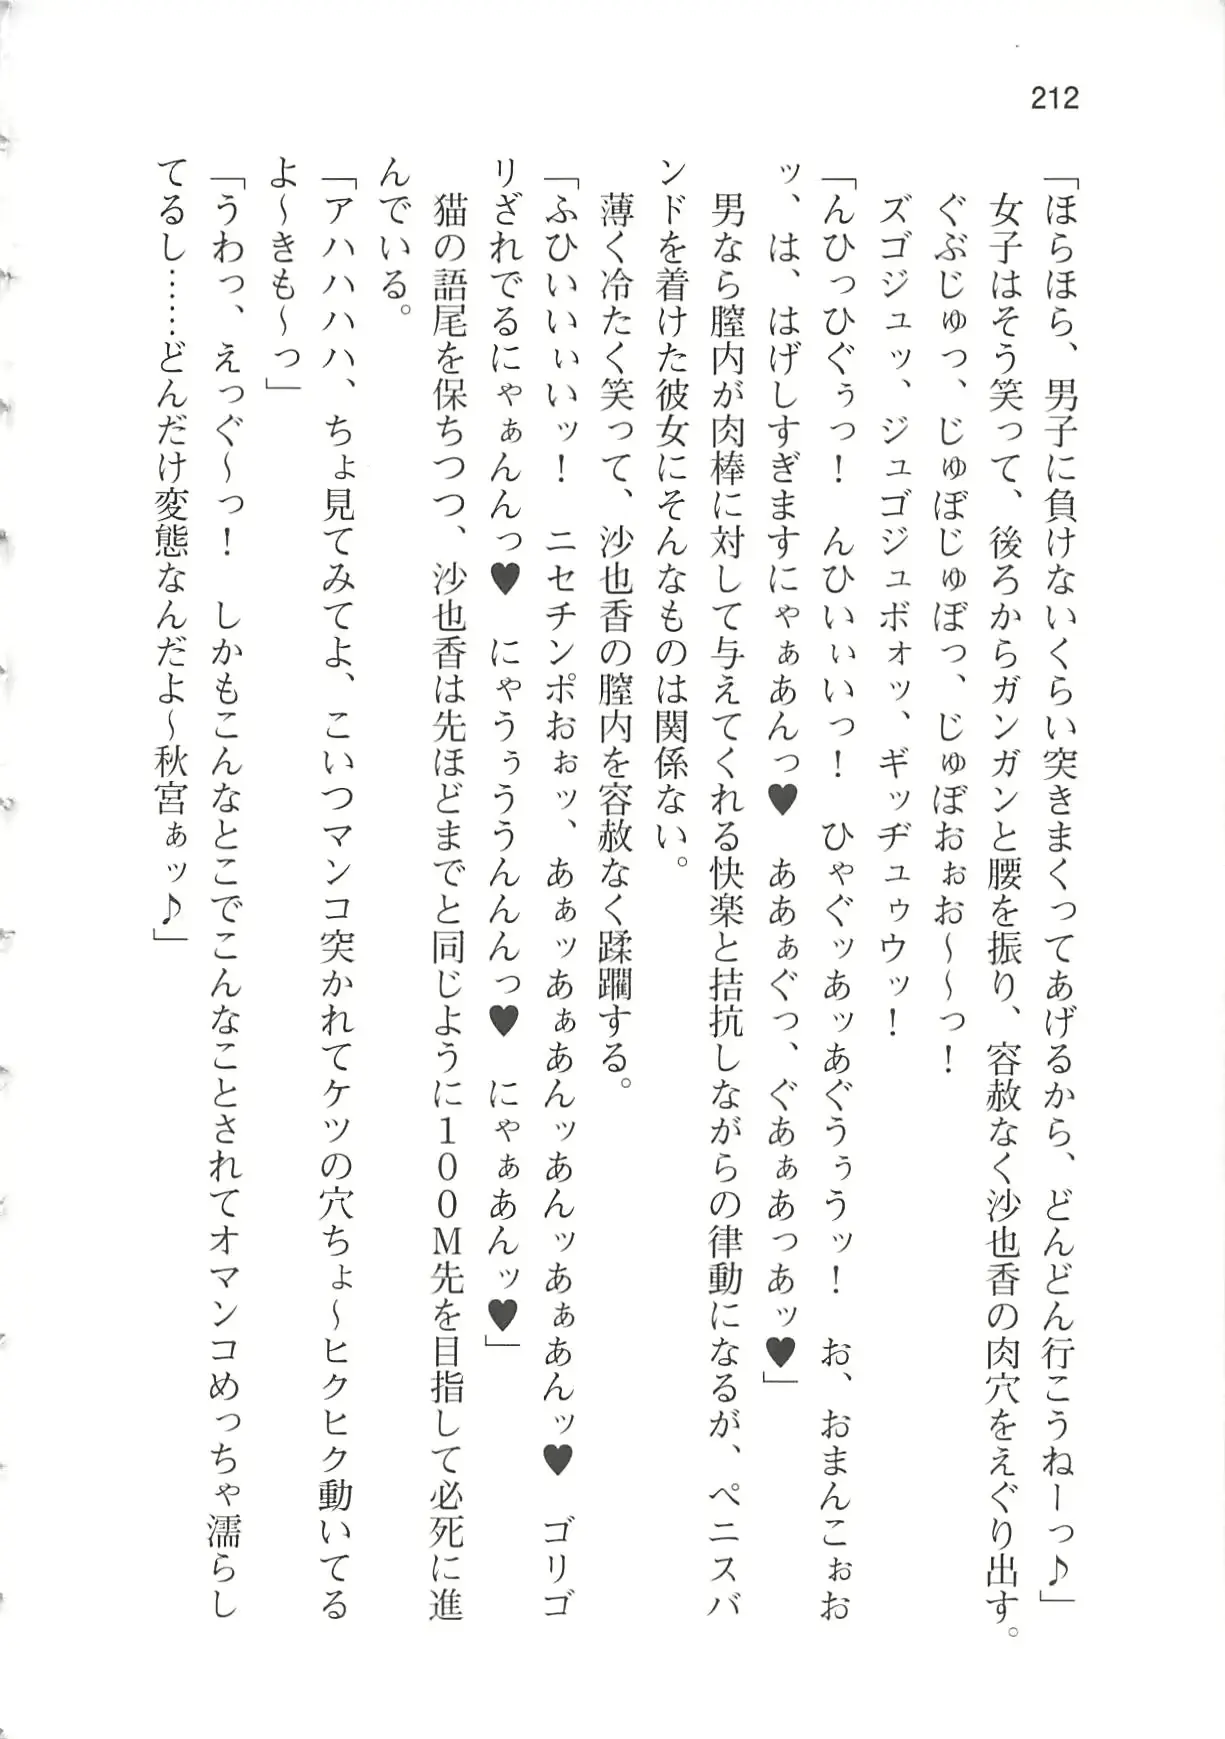 212
「ほらほら、男子に負けないくらい突きまくってあげるから、どんどん行こうねーっ♪」
女子はそう笑って、後ろからガンガンと腰を振り、容赦なく沙也香の肉穴をえぐり出す。
ぐぶじゅっ、じゅぼじゅぼっ、じゅぼおぉお～～っ！
ズゴジュッ、ジュゴジュボォッ、ギッヂュゥウッ！
「んひっひぐぅっ！　んひいぃいっ！　ひゃぐッあッあぐうぅうッ！　お、おまんこぉお
ッ、は、はげしすぎますにゃぁあんっ♥　ああぁぐっ、ぐあぁあっあッ♥」
男なら膣内が肉棒に対して与えてくれる快楽と拮抗しながらの律動になるが、ペニスバ
ンドを着けた彼女にそんなものは関係ない。
薄く冷たく笑って、沙也香の膣内を容赦なく蹂躙する。
「ふひいいぃいッ！　ニセチンポおぉッ、あぁッあぁあんッあんッあぁあんッ♥　ゴリゴ
リざれでるにゃぁんんっ♥　にゃうぅううんんんっ♥　にゃぁあんッ♥」
猫の語尾を保ちつつ、沙也香は先ほどまでと同じように１００Ｍ先を目指して必死に進
んでいる。
「アハハハハ、ちょ見てみてよ、こいつマンコ突かれてケツの穴ちょ～ヒクヒク動いてる
よ～きも～っ」
「うわっ、えっぐ～っ！　しかもこんなとこでこんなことされてオマンコめっちゃ濡らし
てるし……どんだけ変態なんだよ～秋宮ぁッ♪」